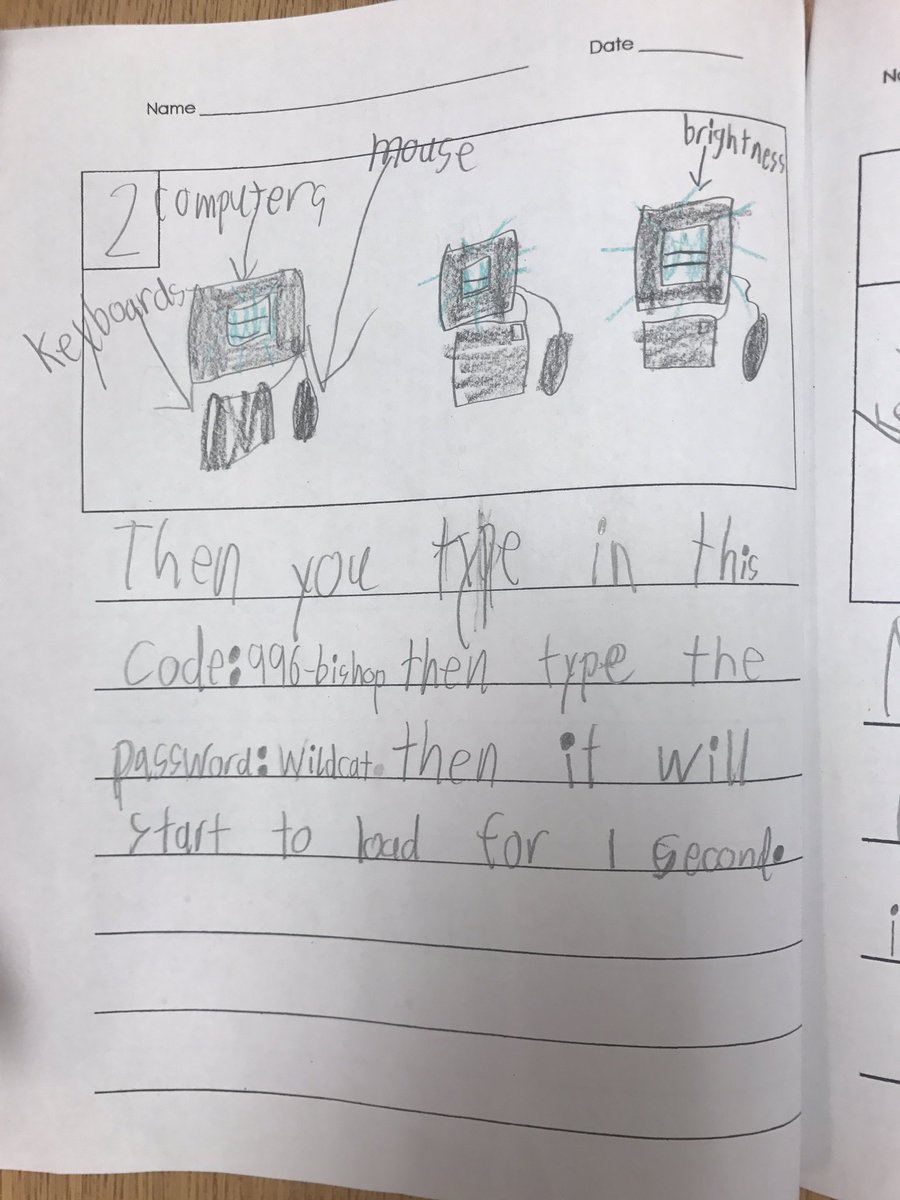 Date
Name
mouse
brightness
2
Computers
Keyboards
Then you type in this
Code:996-bishop then type the
password:Wildcat. then it will
start to load for 1 second.